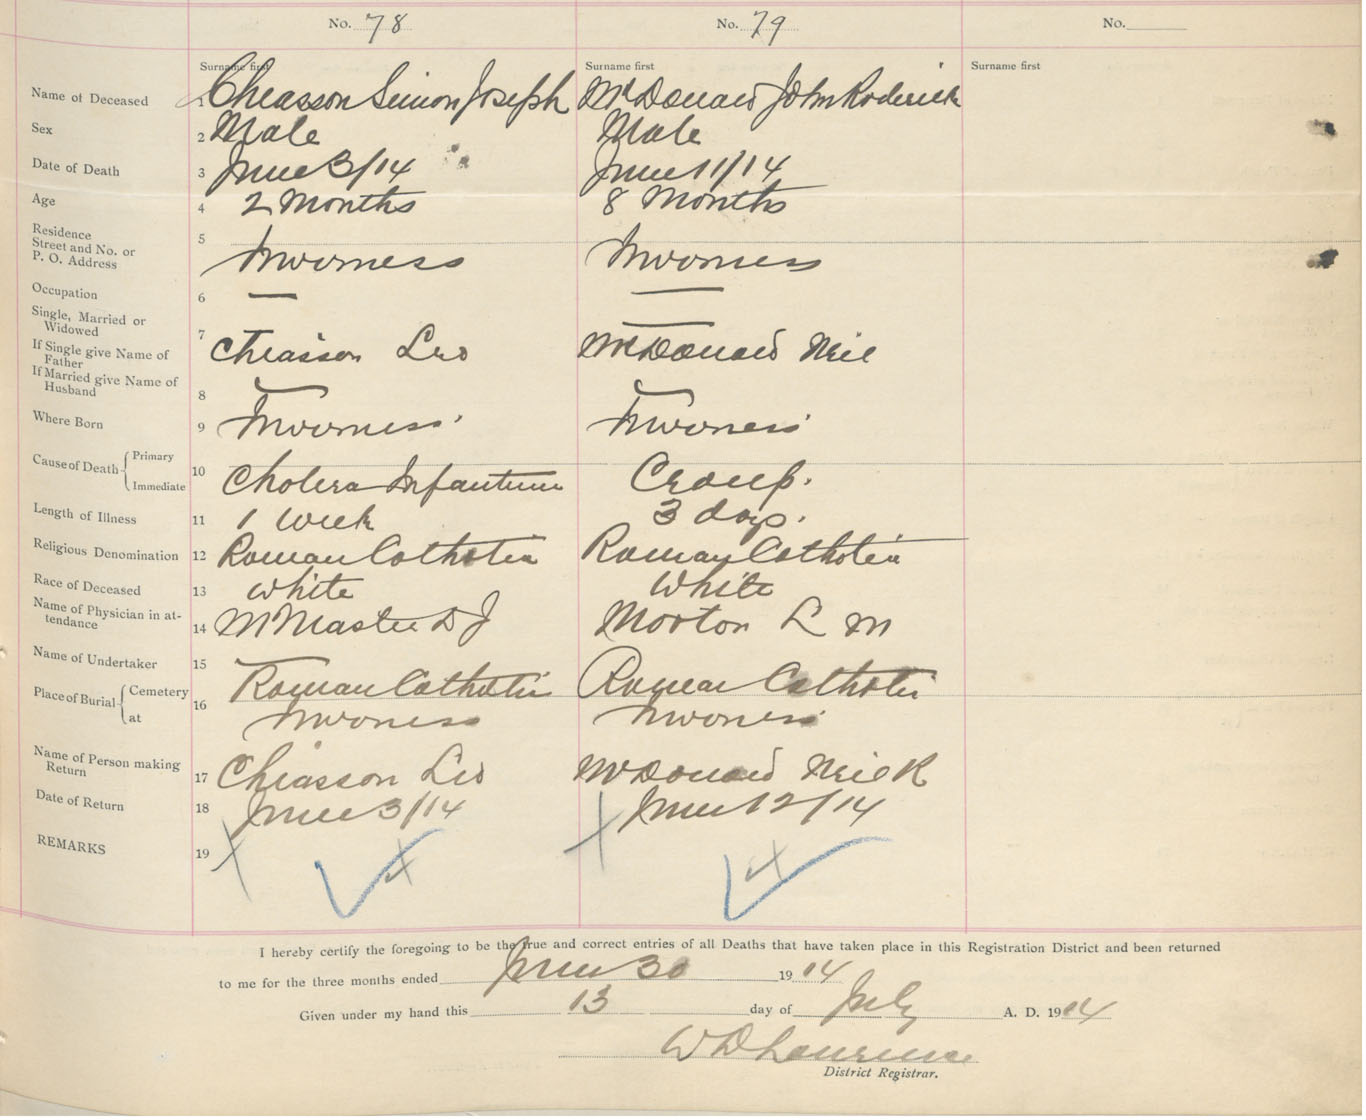 No. 78 No. 79 No.
Surname first Surname first Surname first
Name of Deceased 1 Chiasson Simon Joseph McDonald John Roderick
Sex 2 Male Male
Date of Death 3 June 3/14 June 11/14
Age 4 2 Months 8 Months
Residence
Street and No. or
P. O. Address 5 Inverness Inverness
Occupation 6 — —
Single, Married or
Widowed 7 —
If Single give Name of
Father Chiasson Leo McDonald Neil
If Married give Name of
Husband 8 — —
Where Born 9 Inverness Inverness
Cause of Death Primary
Immediate 10 Cholera Infantum Croup.
Length of Illness 11 1 Week 3 days.
Religious Denomination 12 Roman Catholic Roman Catholic
Race of Deceased 13 White White
Name of Physician in at-
tendance 14 McMaster D J Morton L M
Name of Undertaker 15 —
Place of Burial Cemetery Roman Catholic Roman Catholic
at 16 Inverness Inverness
Name of Person making
Return 17 Chiasson Leo McDonald Neil R
Date of Return 18 June 3/14 June 12/14
REMARKS 19
I hereby certify the foregoing to be the true and correct entries of all Deaths that have taken place in this Registration District and been returned
to me for the three months ended June 30 1914
Given under my hand this 13 day of July A. D. 1914
W D Lawrence
District Registrar.